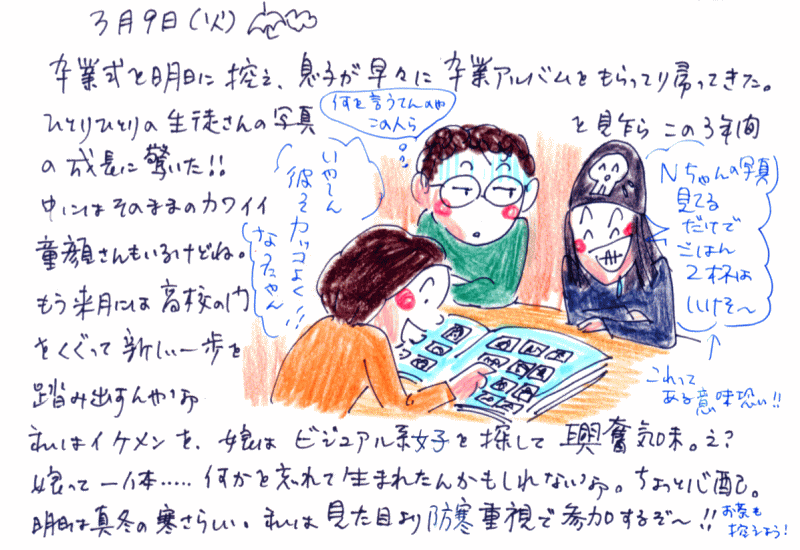 3月9日(火)
卒業式を明日に控え、息子が早々に卒業アルバムをもらって帰ってきた。
ひとりひとりの生徒さんの写真
を見乍ら この3年間
の成長に驚いた!!
中にはそのままのカワイイ
童顔さんもいるけどね。
もう来月には高校の門
をくぐって新しい一歩を
踏み出すんやなぁ
私はイケメンを、娘はビジュアル系女子を探して興奮気味。え?
娘って一体‥‥‥何かを忘れて生まれたんかもしれないなぁ。ちょっと心配。
明日は真冬の寒さらしい。私は見た目より防寒重視で参加するぞ〜!!
お茶も
控えよう!
何を言うてんのや
この人ら
いや〜ん
彼えカッコよく!!
なったやん
Nちゃんの写真
見てる
だけで
ごはん
2杯は
いけそ〜
これって
ある意味恐い!!